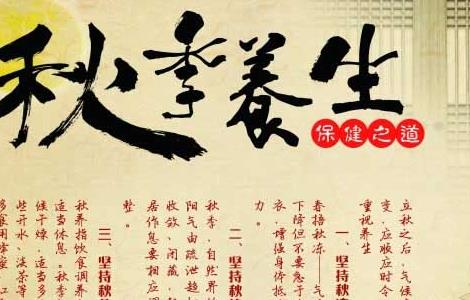 秋季養生
保健之道
立秋之后，气候
变，应顺应时令
重视养生
一、坚持秋
春捂秋冻——气
下降但不要急于
衣，增强身体抵
力。
二、坚持秋
秋季，自然界的
阳气由疏泄趋
收敛、闭藏，
居作息要相应调
整。
三、坚持秋
秋养指饮食调养
适当休息，秋季
候干燥，适当多
些开水、淡茶等